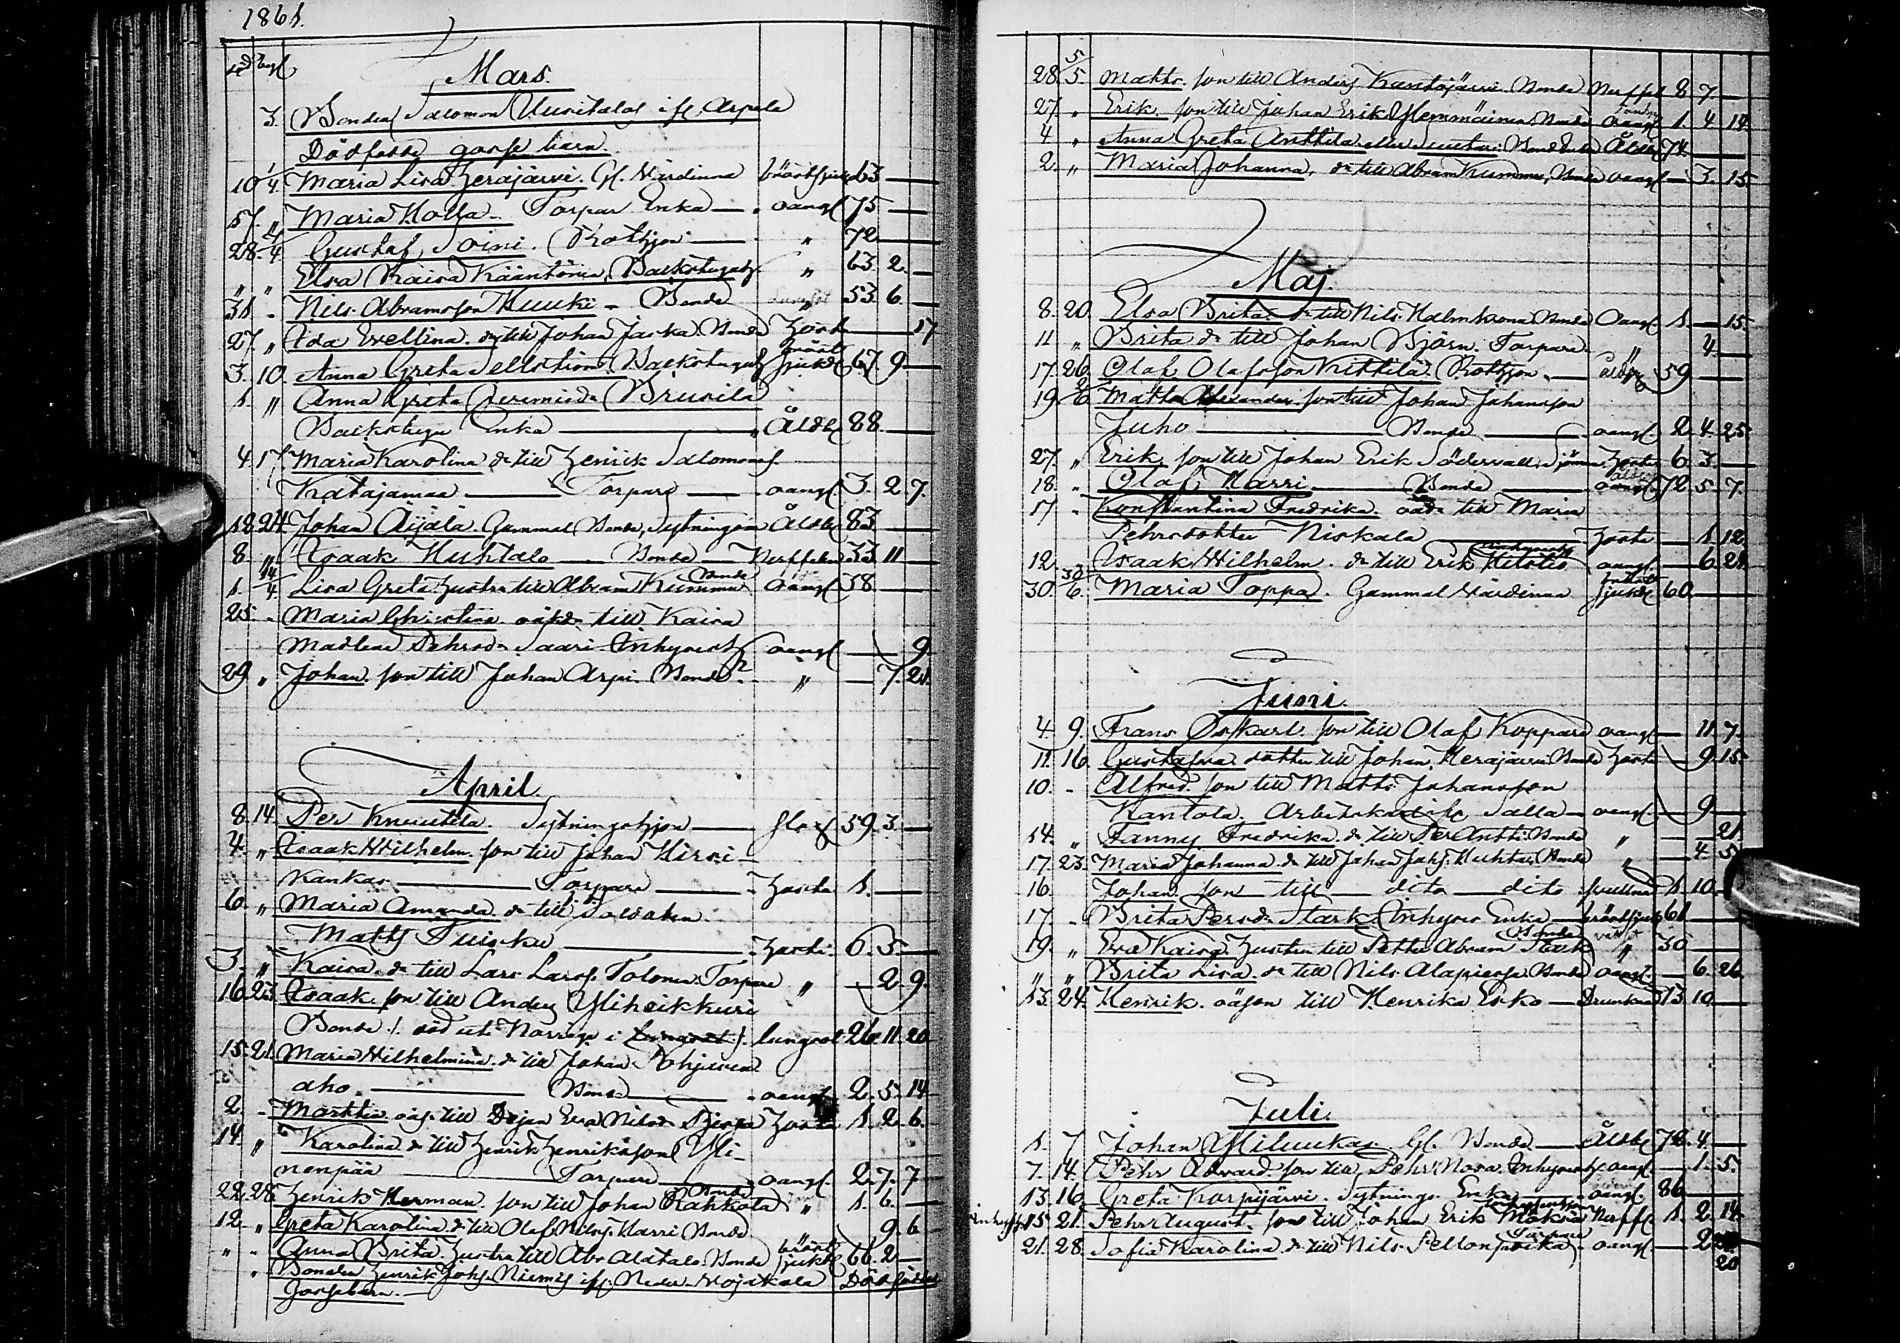 1861.
Mars.
3. Bonden Salomon Uusitalos i Arpela
Dödfödde gosse barn.
10 1/4 Maria Lisa Herajärvi. Gl. Värdinna bröstsjukd. 63 —
Maria Kolla — Torpar Enka — oangf 75 —
28. 4/4 Gustaf Soini. Rothjon — " 72 —
" " Elsa Kaisa " 63 2 —
31 - Nils Abramsson Kuuki — Bonde 53 6 —
27 " Ida Evellina. dr till Johan Jarka. Bonde Hosta — 17
3. 10. Anna Greta Sellström bröst sjukd 67 9 —
1. " Anna Greta Jeremiadr Brusila
Enka — Åldd 88 —
4. 17 Maria Karolina dr till Henrik Salomons.
Katajamaa — Torpare — oangf 3. 2. 7.
12. 24 Johan Äijälä. Gammal Bonde, Sytningsm Åldd 83 —
8. " Isaak Huhtalo — Bonde Nerffeber 33 11 —
1. 14/4 Lisa Greta Hustru till Abram Kumma Bonde oangf 38 —
25. - Maria Christina oäkdr till Kaisa
Madlena Pehrsdr Saari Inhyses oangf — 9.
29. " Johan, son till Johan Arpi. Bonde. " — 7. 21.
April.
8. 14. Per Knuutila. Sytningshjon — 59. 3. —
4. " Isaak Wilhelm. son till Johan Hirsi-
kankas — Torpare — Hosta 1. —
6. " Maria Amanda dr till Soldaten
Matts Tuisku — Hosta 6. 5. —
3. " Kaisa. dr till Lars Larss. Tolonen. Torpare " — 2. 9.
16. 23. Isaak. son till Anders Yliheikkuri
Bonde. /: död uti Norrige i lungsot 26. 11. 20.
15. 21. Maria Wilhelmina. dr till Johan
aho. — Bonde — oangf 2. 5. 14.
2. - till Dejan Eva Nilsdr Hosta 1. 2. 6.
14. " Karolina dr till Henrik Henriksson Yli-
nenpää — Torpare — oangf. 2. 7. 7.
22. 28. Henrik Herman. son till Johan Rahkola Bonde " 1. 6. —
12. " Greta Karolina. dr till Olaf Nilss. Harri Bonde — 9. 6.
" - Anna Brita. Hustru till Abr. Alatalo. Bonde bröst sjukd 66. 2. —
" Bonden Henrik Johs. Niemis i Neder Wojakala Dödfödde
Gossebarn. —
28. 5/5 Matts. son till Anders Kuntojärvi. Bonde Nerffeb 8 7. —
27 " Erik. son till Johan Erik Ylemmäinen. Bonde oangf 1. 4 14
4 " Anna Greta Anttila Bond Enka Åldd 74. —
2. " Maria Johanna, dr till Abram Kumma, Bonde oangf — 3. 15
Maj.
8. 20. Elsa Brita. dr till Nils Malmkrona Bonde Oangf 1. — 15.
11 " Brita dr till Johan Björn. Torpare " 4 —
17. 26. Olof Olofsson Kittilä. Rothjon — 59 —
19. 2/6 Matts Alexander. son till Johan Johansson
Juho — Bonde — oangf 2. 4. 25.
27. " Erik, son till Johan Erik Södervall, Hosta 6. 3. —
18. " Olof Harri — Bonde — 72. 5. 7.
17 - Konstantina Fredrika. oädr till Maria
Pehrsdotter Niskala — Hosta — 1. 12
12. " Isaak Wilhelm. till Erik oangf — 6. 21.
30. 30/6. Maria Toppa. Gammal Värdinna sjukd 60 —
Juni.
4. 9. Frans Oskari. son till Olof Koppara oangf — 11. 7.
11. 16. Gustafva dotter till Johan Herajärvi Bonde Hosta — 9. 15.
10. - Alfred. son till Matts Johansson
Kantola. Salla — oangf — 9. —
14. " Fanny Fredrika. dr till Per Antti. Bonde " — 21.
17. 23. Maria Johanna dr till Johan Johs. Huhta, Bonde " — 4. 5.
16. Johan. son till — dito — dito 1. 10. —
17 - Brita Persdr Stark Inhyses Enka — bröstsjukd 61 —
19. " Eva Kaisa. Hustru till Petter Abram Stark Bonde " 30 —
" " Brita Lisa. dr till Nils Bonde oangf. — 6. 26.
13. 24. Henrik. oäson till Henrika Erko — Drunknad 13 10. —
Juli.
1. 7. Johan Yliluukas. Gl. Bonde — Åldd 78. 4. —
7. 14. Pehr Edvard. son till Pehr Nora. Inhyses oangf. — 1. 5.
13. 16. Greta Korpijärvi. Sytnings. Enka — oangf. 86 —
15. 21. Pehr August. son till Johan Erik Nerff. 1. 2. 14.
21. 28. Sofia Karolina. dr till Nils Pellonpoika Torpare — oangf — 2.
20